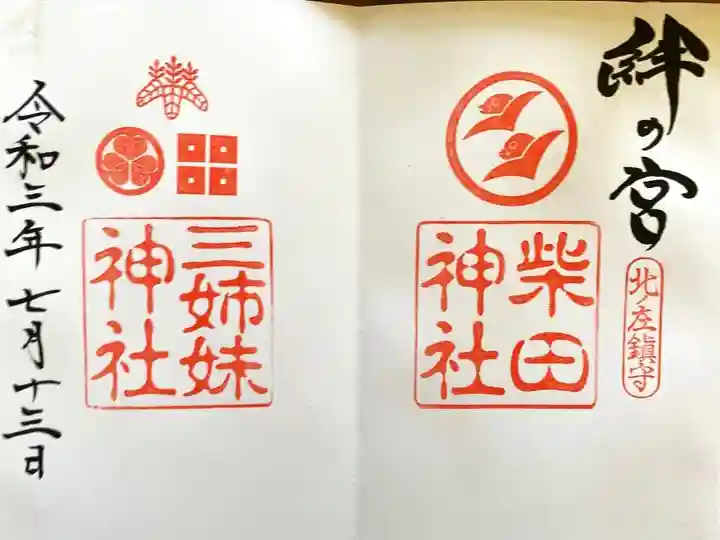 絆の宮
北ノ庄鎮守
柴田
神社
三姉妹
神社
令和三年七月十三日